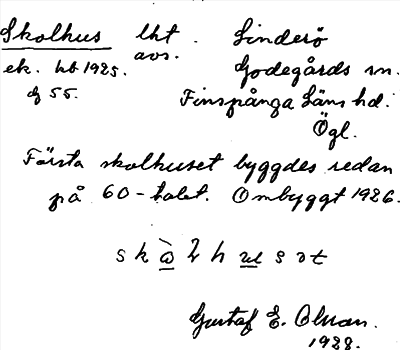 Skolhus lht. Linderö
avs.
ek. bl 1925. Godegårds sn.
dg 55. Finspånga läns hd.
Ögl.
Första skolhuset byggdes redan
på 60-talet. Ombyggt 1926.
Gustaf E. Olsson.
1928.